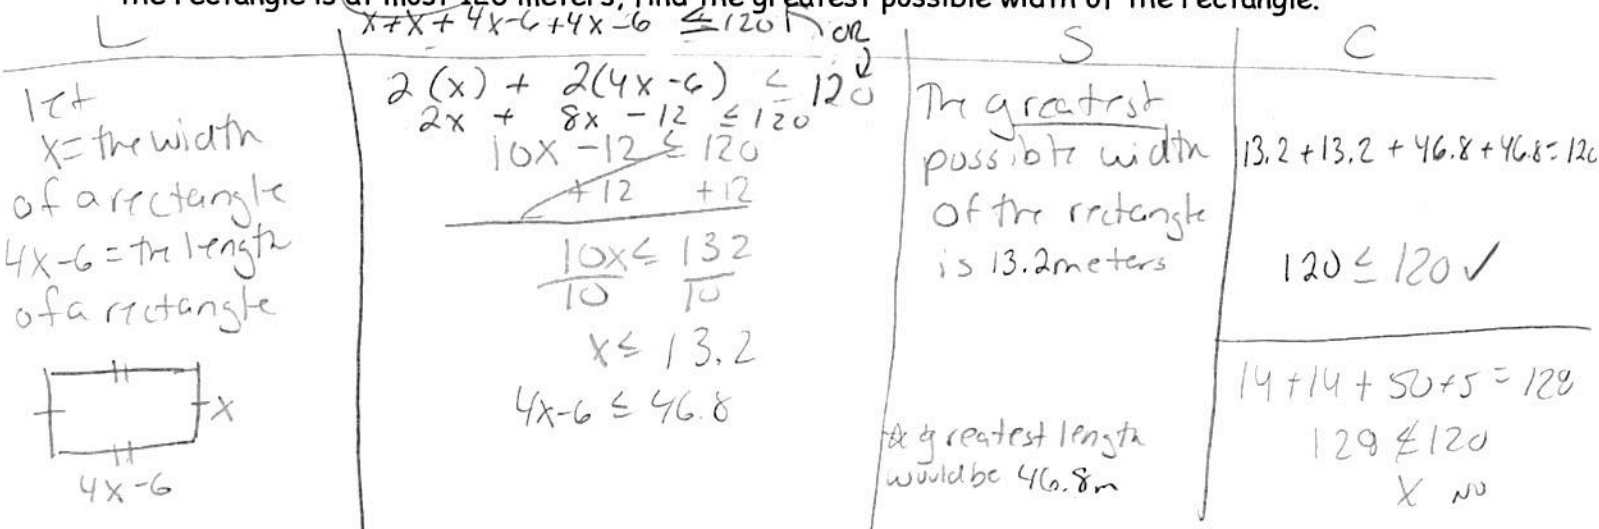 the rectangle is at most 120 meters, find the greatest possible width of the rectangle.
L
let
x = the width
of a rectangle
4x-6 = the length
of a rectangle
x
4x-6
x+x+4x-6+4x-6 ≤ 120 or
2(x) + 2(4x-6) ≤ 120
2x + 8x - 12 ≤ 120
10x - 12 ≤ 120
+12 +12
10x ≤ 132
10 10
x ≤ 13.2
4x-6 ≤ 46.8
S
The greatest
possible width
of the rectangle
is 13.2 meters
☆ greatest length
would be 46.8m
C
13.2 + 13.2 + 46.8 + 46.8 = 120
120 ≤ 120 ✓
14 + 14 + 50 + 5 = 128
128 ≰ 120
X NO